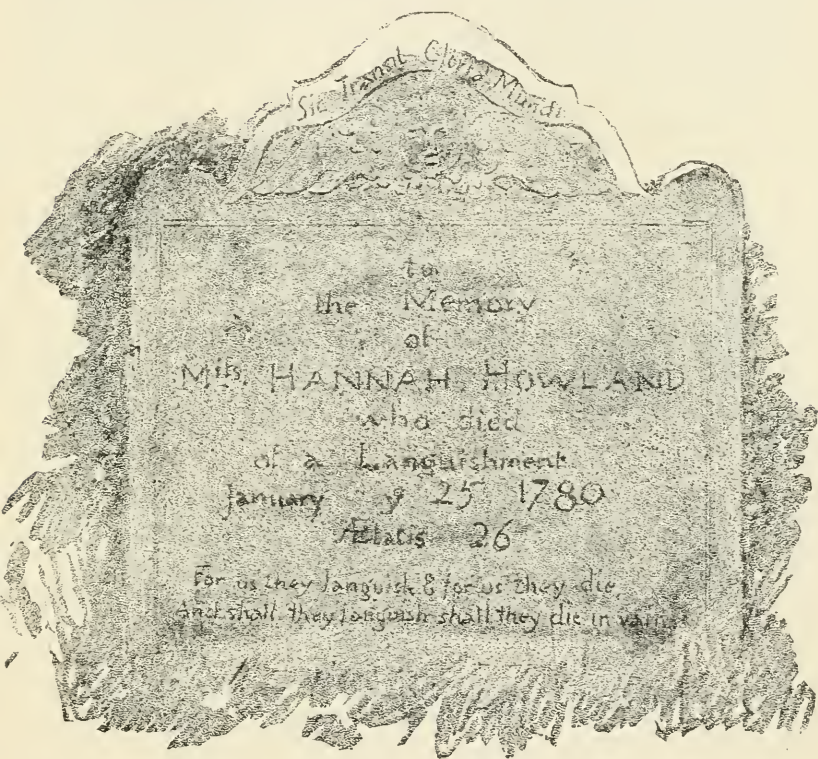 Sic Transit Gloria Mundi
to
the Memory
of
Mifs. HANNAH HOWLAND
who died
of a Languishment
January yᵉ 25 1780
Ætatis 26
For us they languish & for us they die,
And shall they languish shall they die in vain.